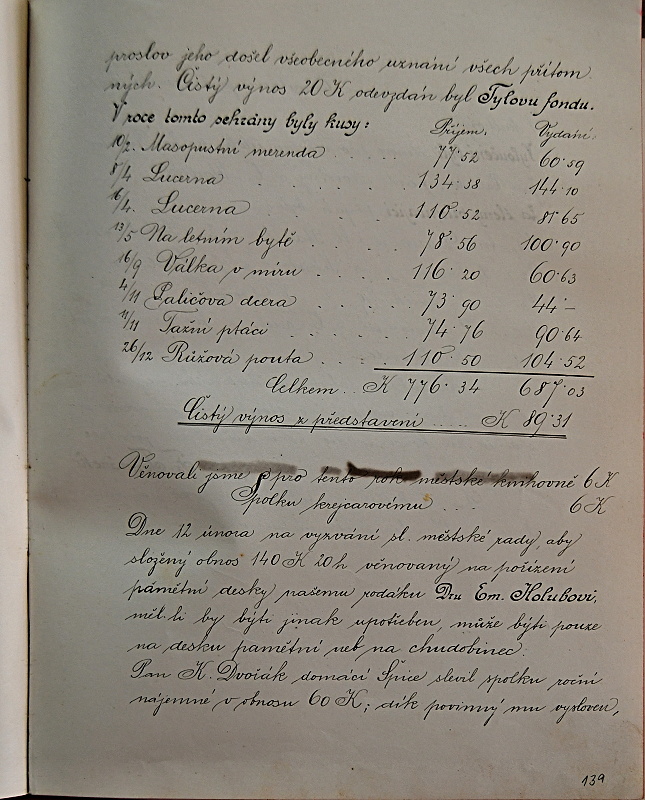 proslov jeho došel všeobecného uznání všech přítom
ných. Čistý výnos 20 K odevzdán byl Tylovu fondu.
V roce tomto sehrány byly kusy: Příjem. Vydání.
10/2. Masopustní merenda . . . . 77·52 60·59
8/4 Lucerna . . . . 134·38 144·10
16/4. Lucerna . . . . 110·52 81·65
13/5 Na letním bytě . . . . 78·56 100·90
16/9 Válka v míru . . . . 116·20 60·63
4/11 Paličova dcera . . . . 73·90 44·—
11/11 Tažní ptáci . . . . 74·76 90·64
26/12 Růžová pouta . . . . 110·50 104·52
Celkem . . K 776·34 687·03
Čistý výnos z představení ..... K 89·31
Věnovali jsme pro tento rok městské knihovně 6 K
Spolku krejcarovému . . . 6 K
Dne 12 února na vyzvání sl. městské rady, aby
složený obnos 140 K 20 h věnovaný na pořízení
pamětní desky našemu rodáku Dru Em. Holubovi,
měl-li by býti jinak upotřeben, může býti pouze
na desku pamětní neb na chudobinec.
Pan K. Dvořák domácí Špice slevil spolku roční
nájemné v obnosu 60 K; dík povinný mu vysloven,
139